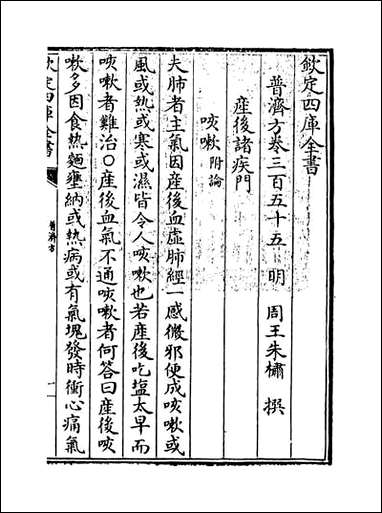 欽定四庫全書
普濟方卷三百五十五 明 周王朱橚 撰
産後諸疾門
咳嗽 附論
夫肺者主氣因産後血虛肺經一感微邪便成咳嗽或
風或熱或寒或濕皆令人咳嗽也若産後吃塩太早而
咳嗽者難治○産後血氣不通咳嗽者何答曰産後咳
嗽多因食熱麵壅納或熱病或有氣塊發時衝心痛氣
欽定四庫全書
普濟方
一